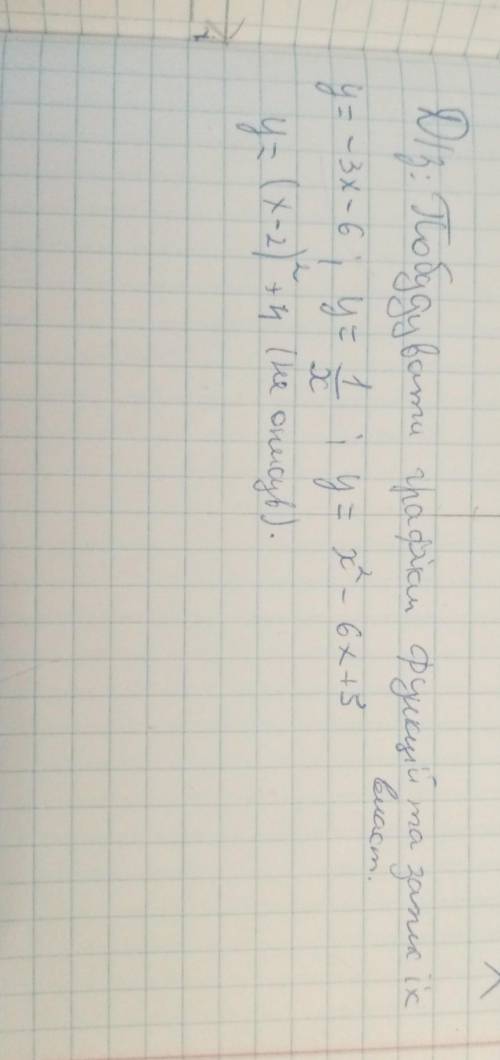 Д/з: Побудувати графіки функцій та запис їх
власт.
y = -3x-6 ; y = 1/x ; y = x² - 6x+5
y = (x-2)² +4 (не описув).